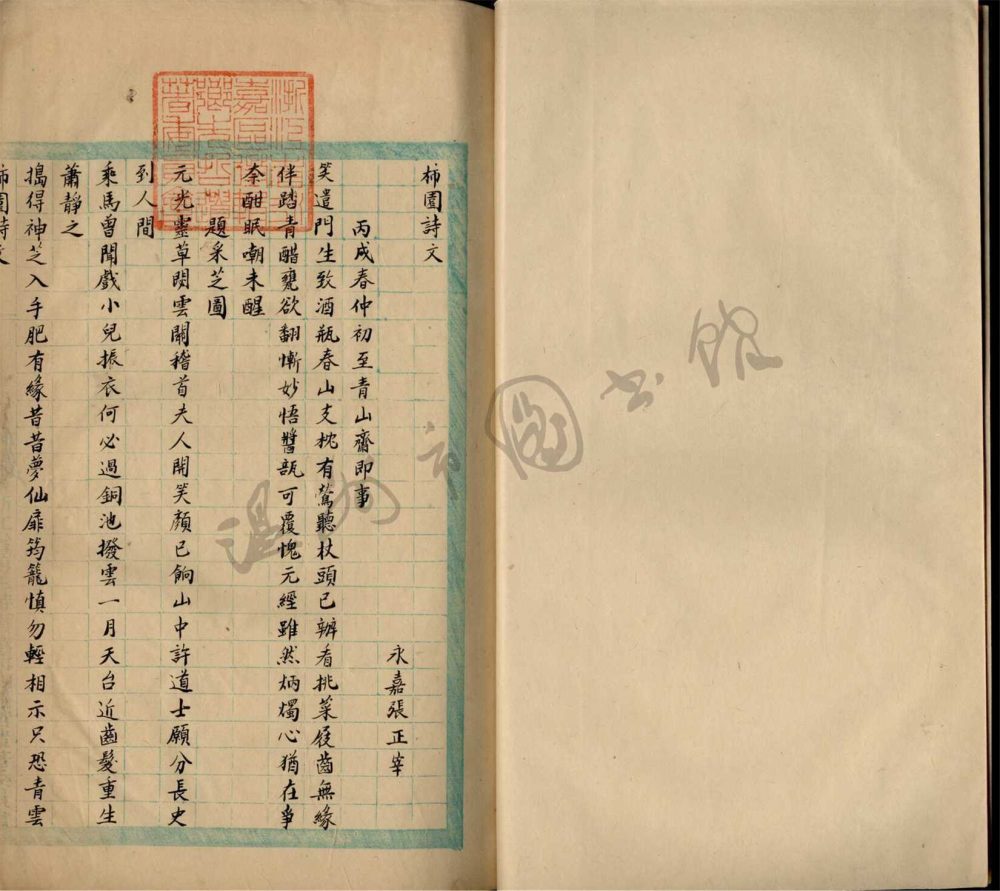 柿園詩文
永嘉張正宰
丙戌春仲初至青山齋即事
笑遣門生致酒瓶春山支枕有鶯聽杖頭已辦看挑菜屐齒無緣
伴踏青醋甕欲翻慚妙悟醬瓿可覆愧元經雖然炳燭心猶在爭
奈酣眠嘲未醒
題采芝圖
元光靈草閟雲關稽首夫人開笑顏已餉山中許道士願分長史
到人間
乘馬曾聞戲小兒振衣何必過銅池撥雲一月天台近齒髮重生
蕭靜之
搗得神芝入手肥有緣昔昔夢仙扉筠籠慎勿輕相示只恐青雲
柿園詩文
溫州市圖書館